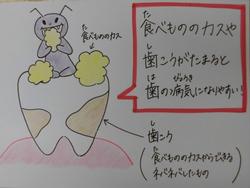 食べもののカスや
歯こうがたまると
歯の病気になりやすい!
食べもののカス
歯こう
(食べもののカスからできる
ネバネバしたもの)